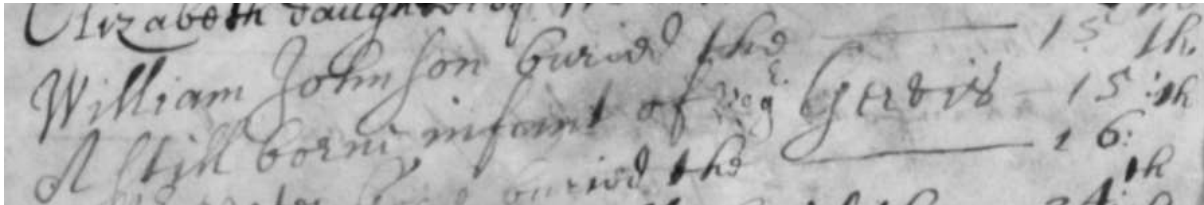 Elizabeth daughter of
William Johnson buried the 15th
A still borne infant of Gervis 15:th
buried the 16:th
24: